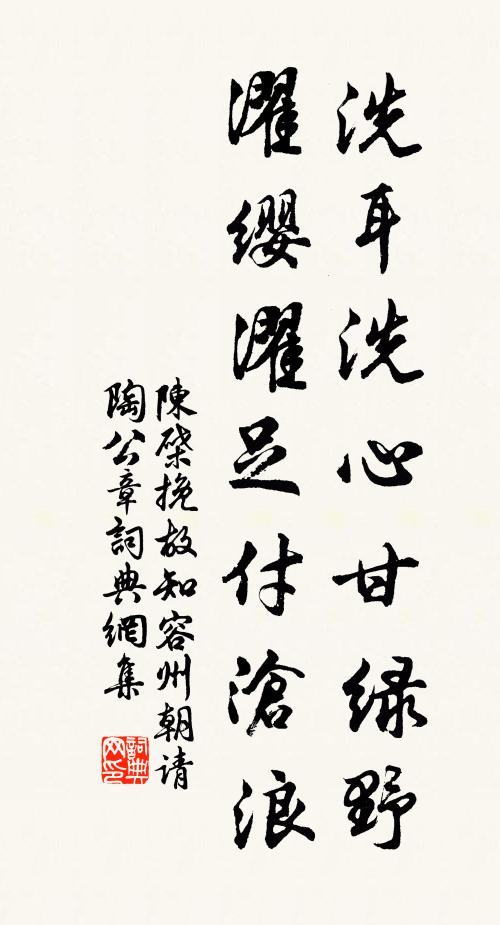 洗耳洗心甘绿野
濯缨濯足付滄浪
陳棨挽故知容州朝请
陶公章詞典網集
詞典